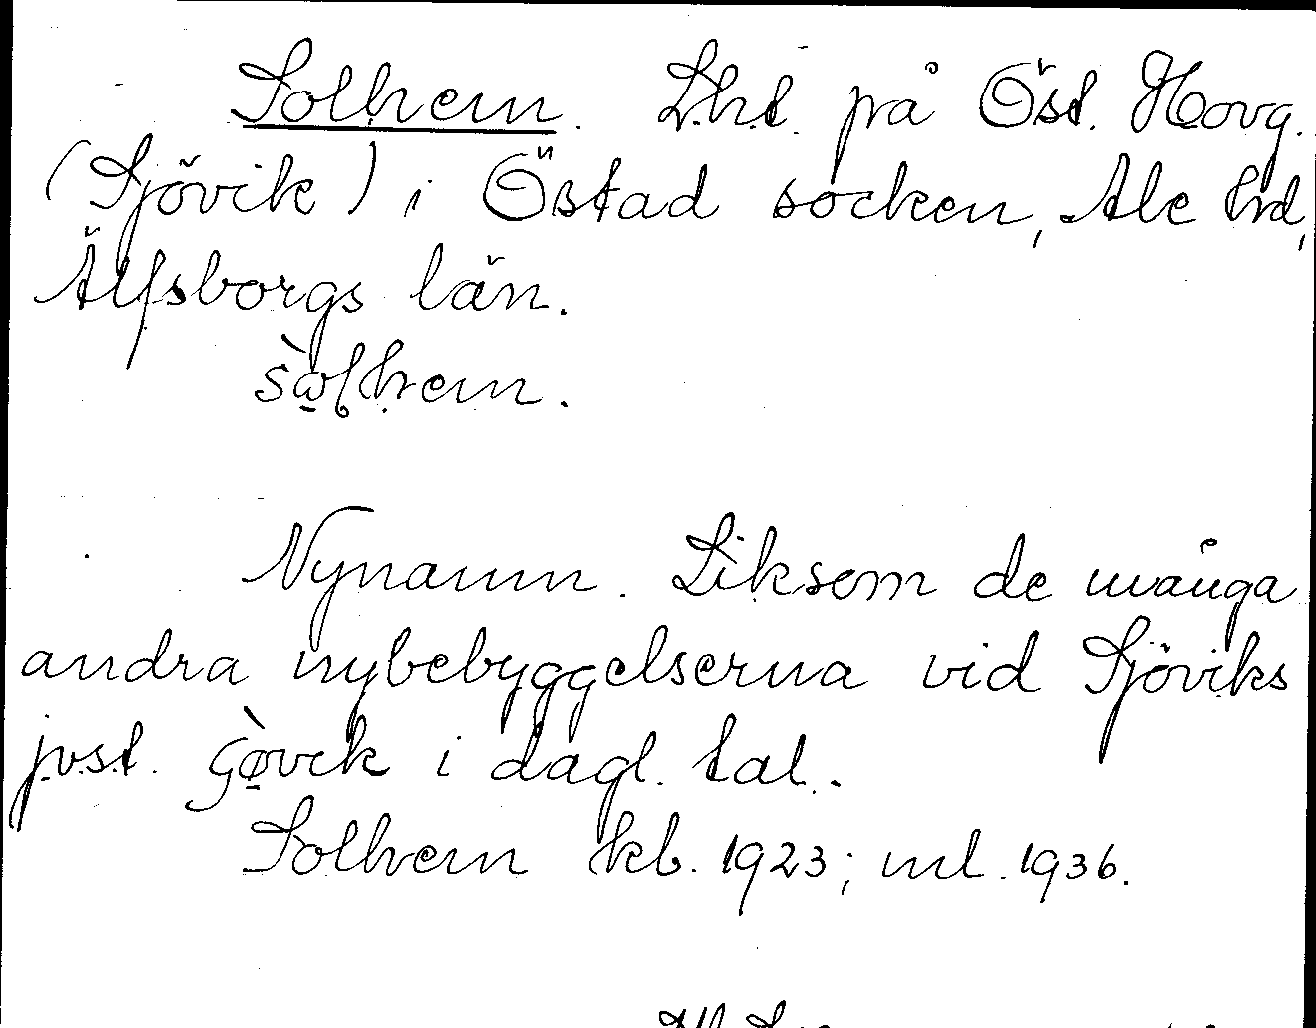 Solhem. Lht. på Öst. Hovg.
(Sjövik) i Östad socken, Ale hrd,
Älfsborgs län.
sòlhem.
Nynamn. Liksom de många
andra nybebyggelserna vid Sjöviks
jvst. i dagl. tal.
Solhem kb. 1923; ml. 1936.